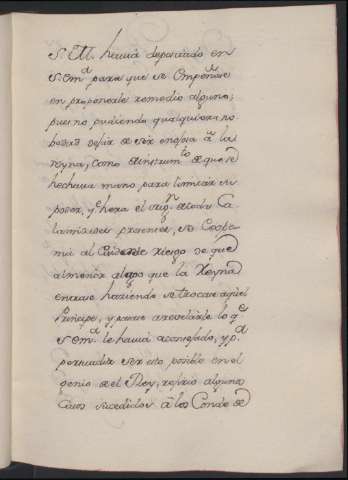 S. M. havia depositado en
S. Em.ª para que se empeñase
en proponerle remedio alguno;
pues no pudiendo qualquiera no
poder dejar de ser enojosa â la
Reyna; como instrum.to de que se
hechava mano para limitar su
poder, y q.e hera el orig.n de todas Ca
lamidades presentes, se Expo
nia al Evidente riesgo de que
al menor alago que la Reyna
entrase haziendo se trocase aquel
Principe, y pasase a revelarle lo q.e
S. Em.ª le havia aconsejado, y p.ª
persuadir ser esto posible en el
genio de el Rey, refirio algunos
Casos sucedidos â los Condes de